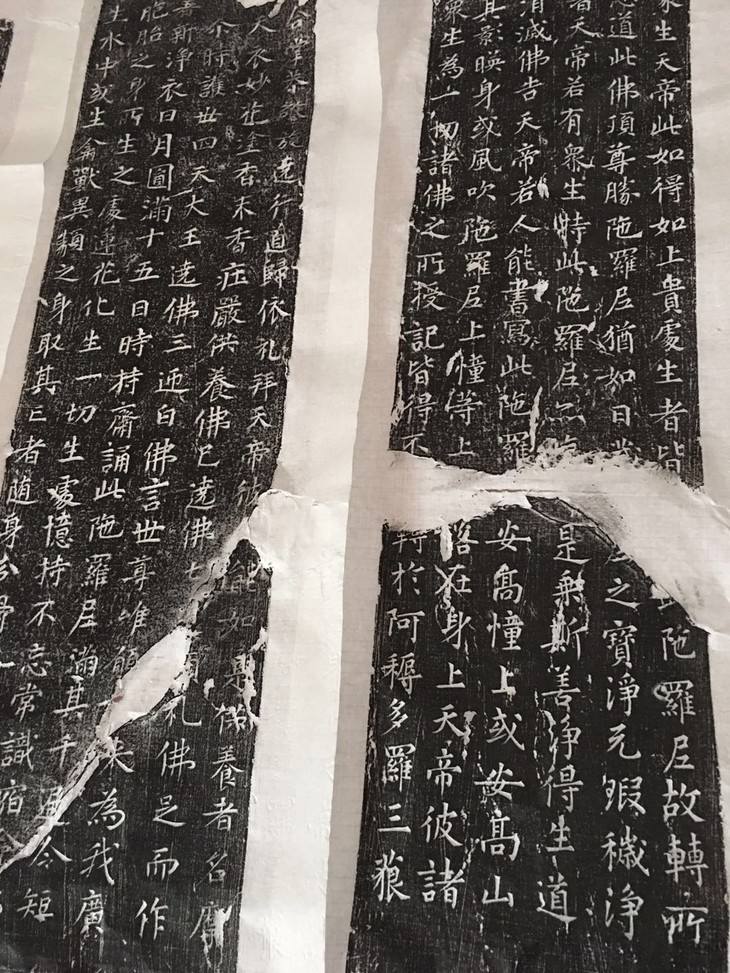 眾生天帝此如得如上貴處生者皆陁羅尼故轉所
道此佛頂尊勝陁羅尼猶如日之寶淨无瑕穢淨
者天帝若有眾生持此陁羅尼是乘斯善淨得生道
消滅佛告天帝若人能書寫此陁羅安高幢上或安高山
其影暎身或風吹陁羅尼上幢等上落在身上天帝彼諸
眾生為一切諸佛之所授記皆得不轉於阿耨多羅三藐
合掌恭敬旋遶行道歸依礼拜天帝彼能如是供養者名摩
天衣妙花塗香末香莊嚴供養佛已遶佛七頂礼佛足而作
尒時護世四天大王遶佛三迊白佛言世尊唯願來為我廣
善新淨衣日月圓滿十五日時持齋誦此陁羅尼滿其千遍令短
胞胎之身所生之處蓮花化生一切生處憶持不忘常識宿
生水中或生禽獸異類之身取其亡者随身分骨